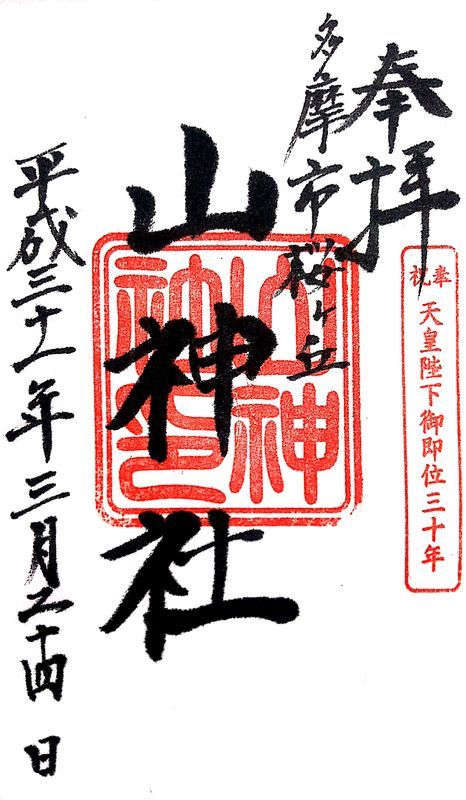 奉拝
多摩市桜ヶ丘
奉祝
天皇陛下御即位三十年
山神社
山神
社印
平成三十一年三月二十四日